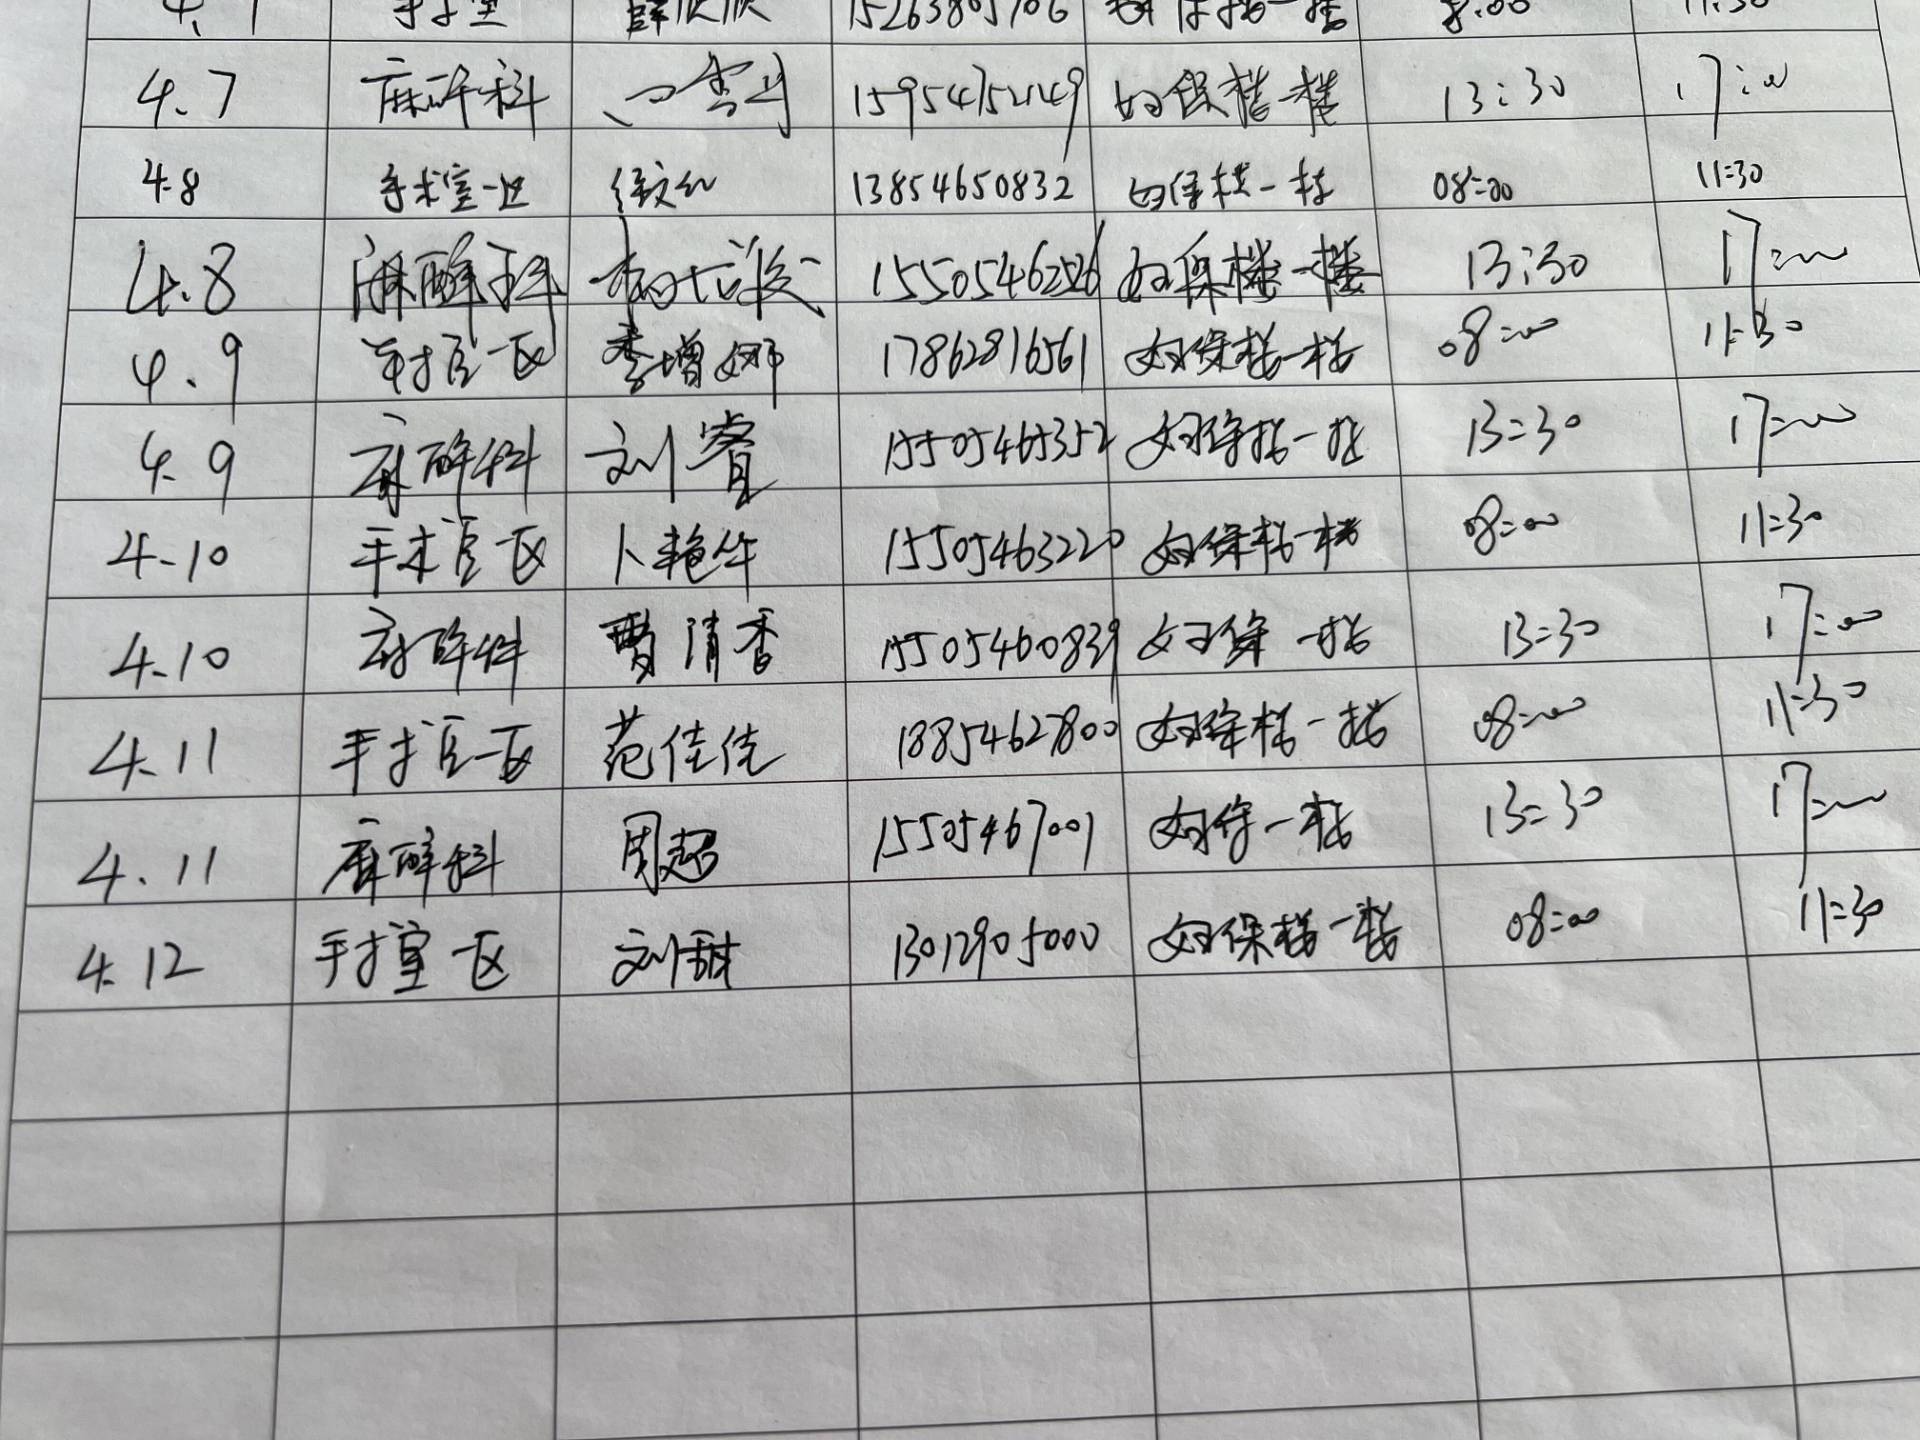 4.7 麻醉科 15954752149 妇保楼一楼 13:30 17:00
4.8 手术室一区 13854650832 妇保楼一楼 08:00 11:30
4.8 麻醉科 15505462526 妇保楼一楼 13:30 17:00
4.9 手术室一区 李增娜 17862816561 妇保楼一楼 08:00 11:30
4.9 麻醉科 刘睿 15505465352 妇保楼一楼 13:30 17:00
4.10 手术室一区 卜艳华 15505463220 妇保楼一楼 08:00 11:30
4.10 麻醉科 贾清香 15505460839 妇保一楼 13:30 17:00
4.11 手术室一区 范佳佳 18854627800 妇保楼一楼 08:00 11:30
4.11 麻醉科 周超 15505467001 妇保一楼 13:30 17:00
4.12 手术室一区 刘甜 13012905000 妇保楼一楼 08:00 11:30